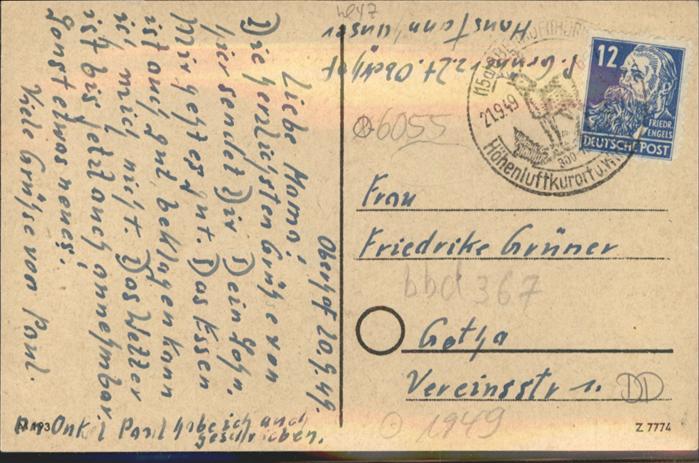 Oberhof 20.9.49.
Liebe Mama!
Die herzlichsten Grüße von
hier sendet Dir Dein Sohn.
Mir geht es gut. Das Essen
ist auch gut, beklagen kann
ich mich nicht. Das Wetter
ist bis jetzt auch annehmbar
Sonst etwas neues?
Viele Grüße von Paul.
An Onkel Paul habe ich auch
geschrieben.
P. Grüner z.Zt. Oberhof
Haus Tann
12
FRIEDR.
ENGELS
DEUTSCHE POST
21.9.49
Höhenluftkurort u. W
6055
Frau
Friedrike Grüner
bbd 367
Gotha
Vereinsstr 1.
DD
1949
Z 7774